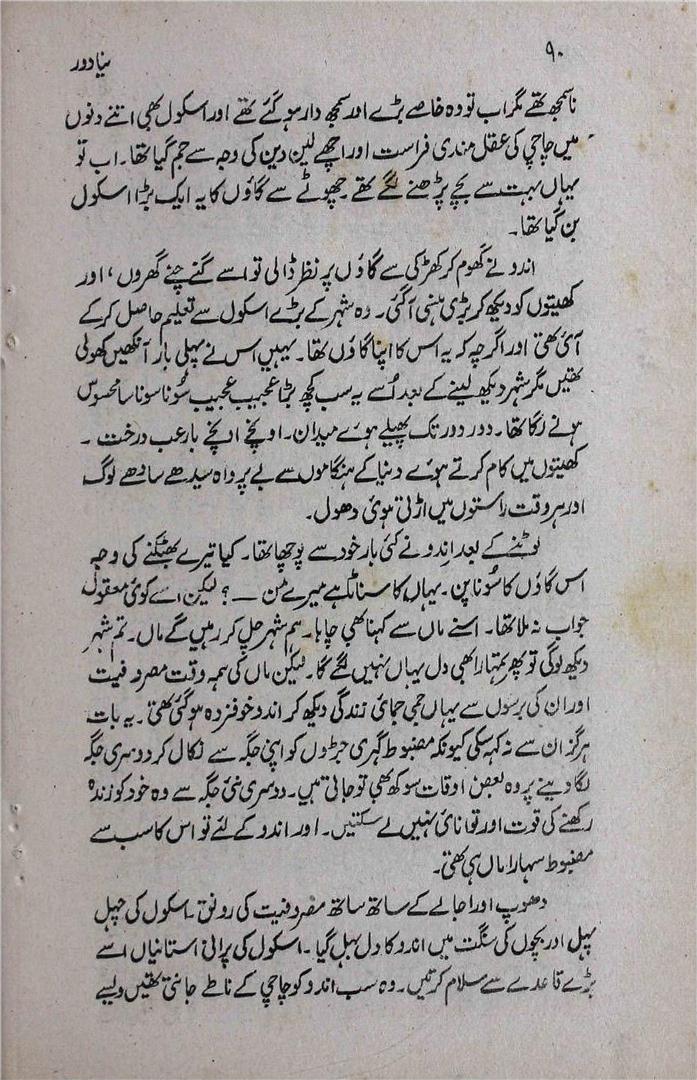 ۹۰
نیا دور
ناسمجھ تھے مگر اب تو وہ خاصے بڑے اور سمجھ دار ہو گئے تھے اور اسکول بھی اتنے دنوں
میں چاچی کی عقل مندی فراست اور اچھے لین دین کی وجہ سے جم گیا تھا۔ اب تو
یہاں بہت سے بچے پڑھنے لگے تھے۔ چھوٹے سے گاؤں کا یہ ایک بڑا اسکول
بن گیا تھا۔
اندو نے گھوم کر کھڑکی سے گاؤں پر نظر ڈالی تو اسے گنے چنے گھروں، اور
کھیتوں کو دیکھ کر بڑی ہنسی آ گئی۔ وہ شہر کے بڑے اسکول سے تعلیم حاصل کر کے
آئی تھی اور اگر چہ کہ یہ اس کا اپنا گاؤں تھا۔ یہیں اس نے پہلی بار آنکھیں کھولی
تھیں مگر شہر دیکھ لینے کے بعد اُسے یہ سب کچھ بڑا عجیب عجیب سُونا سونا سا محسوس
ہونے لگا تھا۔ دور دور تک پھیلے ہوئے میدان۔ اونچے اونچے بارعب درخت ۔
کھیتوں میں کام کرتے ہوئے دنیا کے ہنگاموں سے بے پرواہ سیدھے سادھے لوگ
اور ہر وقت راستوں میں اڑتی ہوئی دھول۔
لوٹنے کے بعد اندو نے کئی بار خود سے پوچھا تھا۔ کیا تیرے بھٹکنے کی وجہ
اس گاؤں کا سُونا پن۔ یہاں کا سناٹا ہے میرے من ــ ؟ لیکن اسے کوئی معقول
جواب نہ ملا تھا۔ اسنے ماں سے کہنا بھی چاہا۔ ہم شہر چل کر رہیں گے ماں۔ تم شہر
دیکھ لوگی تو پھر تمہارا بھی دل یہاں نہیں لگے گا۔ لیکن ماں کی ہمہ وقت مصروفیت
اور ان کی برسوں سے یہاں جمی جمائی زندگی دیکھ کر اندو خوفزدہ ہو گئی تھی۔ یہ بات
ہرگز ان سے نہ کہہ سکی کیونکہ مضبوط گہری جڑوں کو اپنی جگہ سے نکال کر دوسری جگہ
لگا دینے پر وہ بعض اوقات سوکھ بھی تو جاتی ہیں۔ دوسری نئی جگہ سے وہ خود کو زندہ
رکھنے کی قوت اور توانائی نہیں لے سکتیں۔ اور اندو کے لئے تو اس کا سب سے
مضبوط سہارا ماں ہی تھی۔
دھوپ اور اجالے کے ساتھ ساتھ مصروفیت کی رونق ۔ اسکول کی چہل
پہل اور بچوں کی سنگت میں اندو کا دل بہل گیا ۔ اسکول کی پرانی استانیاں اسے
بڑے قاعدے سے سلام کرتیں۔ وہ سب اندو کو چاچی کے ناطے جانتی تھیں ویسے